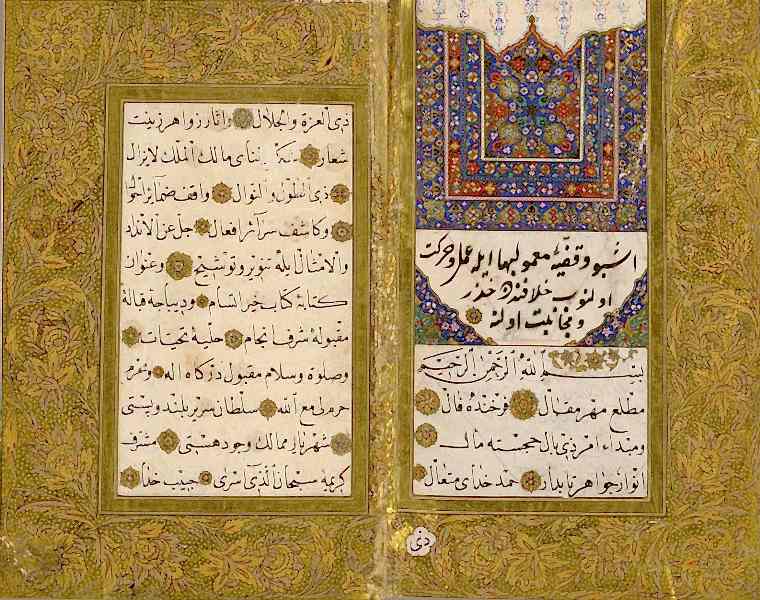 اشبو وقفیهٔ معمول بها ایله عمل و حرکت
اولنوب خلافندن حذر
و مجانبت اولنه
بسم الله الرحمن الرحیم
مطلع مهر مقال فرخنده فال
ومبداء امر ذی بال خجسته مآل
انوار جواهر تابدار حمد خدای متعال
ذی
ذی العزة والجلال وانار زواهر زینت
شعار ثنای مالك الملك لایزال
ذی الطول والنوال واقف ضمائر احوال
وكاشف سرائر افعال جل عن الانداد
والامثال ایله تنویر وتوشیح وعنوان
كتابهٔ كتاب خیر انتسام ودیباجهٔ قبالهٔ
مقبولهٔ شرف انجام حلیهٔ تحیات
وصلوة وسلام مقبول درگاه اله ومحرم
حرم لی مع الله سلطان سریر بلند وپستی
شهریار ممالك وجود هستی مشرف
كریمهٔ سبحان الذی اسری حبیب خدا